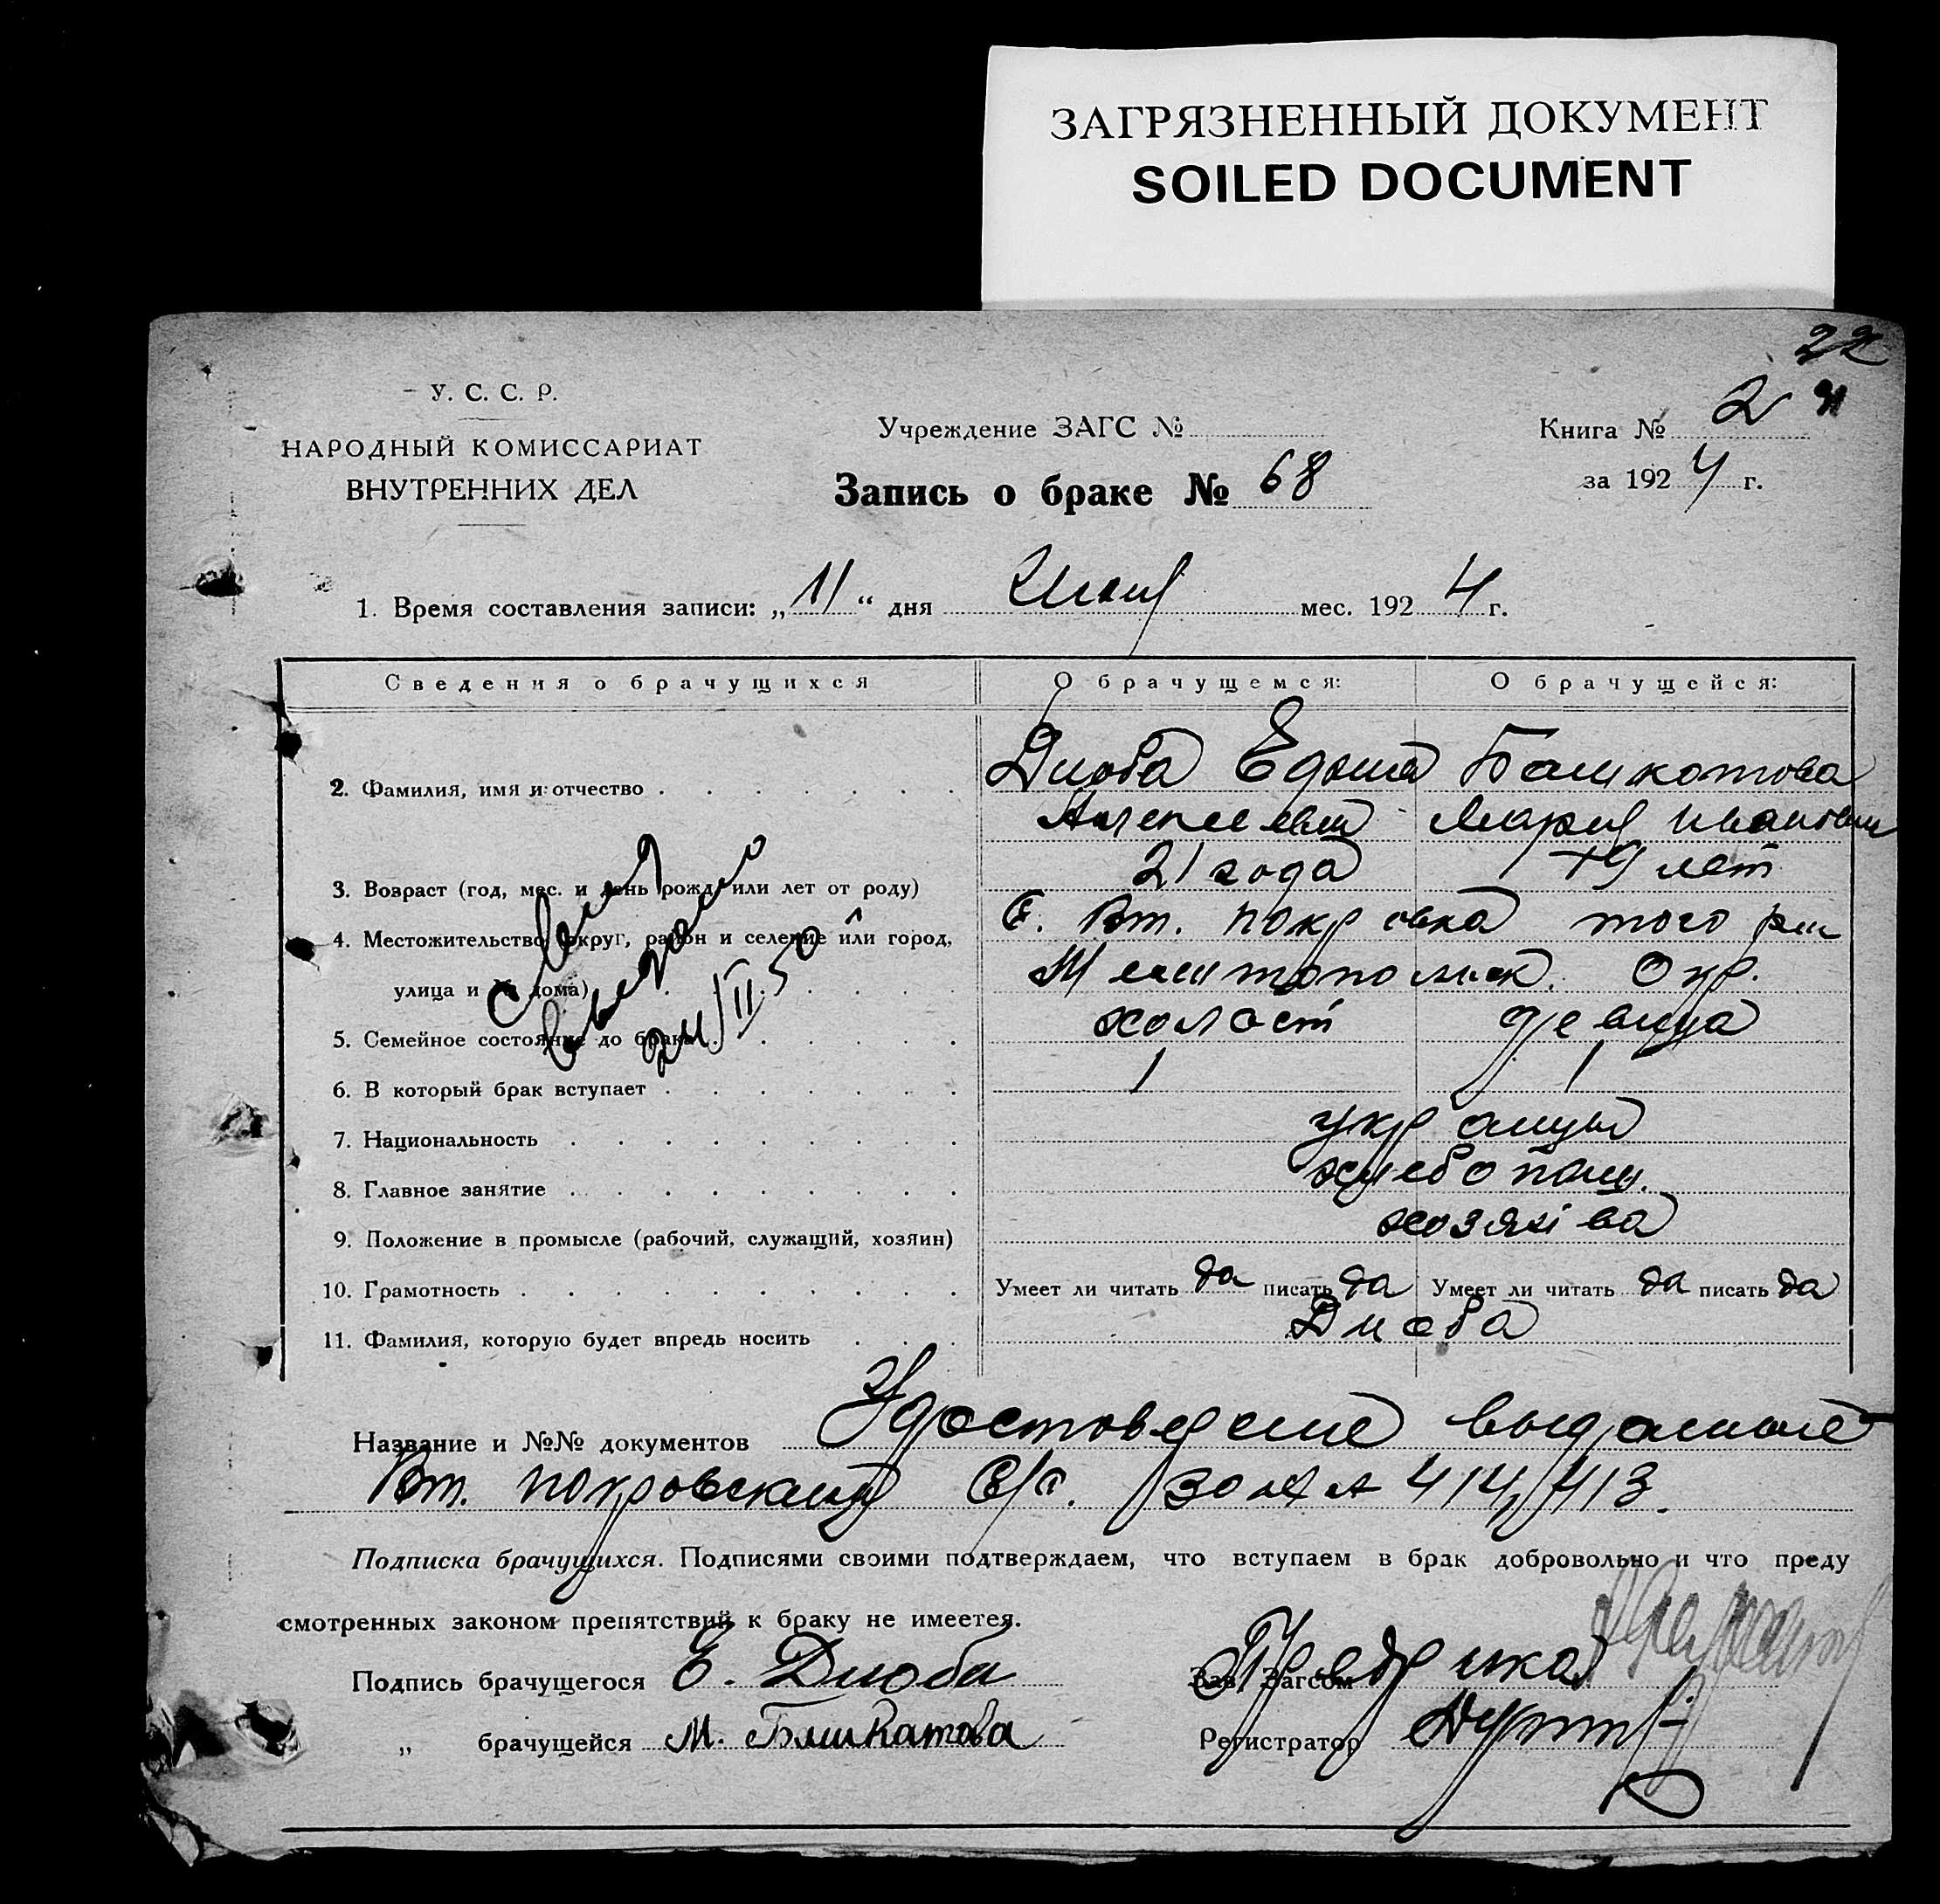 ЗАГРЯЗНЕННЫЙ ДОКУМЕНТ
SOILED DOCUMENT
22
У. С. С. Р.
НАРОДНЫЙ КОМИССАРИАТ
ВНУТРЕННИХ ДЕЛ
Учреждение ЗАГС №
Книга № 2
Запись о браке № 68
за 1924 г.
1. Время составления записи: „11“ дня Июня мес. 1924 г.
Сведения о брачущихся
О брачущемся:
О брачущейся:
2. Фамилия, имя и отчество
Дзюба Башкатова
Алексеевич Мария Ивановна
3. Возраст (год, мес. и день рожд. или лет от роду) 21 года 19 лет
4. Местожительство (округ, район и селение или город, С. Вт. Покровка того
улица и № дома) Мелитопольск. Окр.
5. Семейное состояние до брака холост девица
6. В который брак вступает 1 1
7. Национальность украинцы
8. Главное занятие хлебопаш.
9. Положение в промысле (рабочий, служащий, хозяин) хозяева
10. Грамотность Умеет ли читать да писать да Умеет ли читать да писать да
11. Фамилия, которую будет впредь носить Дзюба
Название и №№ документов Удостоверение выданные
Вт. Покровским С/С. за № 414, 413.
Подписка брачущихся. Подписями своими подтверждаем, что вступаем в брак добровольно и что преду
смотренных законом препятствий к браку не имеется.
Подпись брачущегося Е. Дзюба
Зав. Загсом
„ брачущейся М. Башкатова
Регистратор